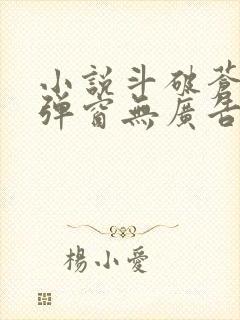 小說斗破蒼
彈窗無廣告
楊小愛